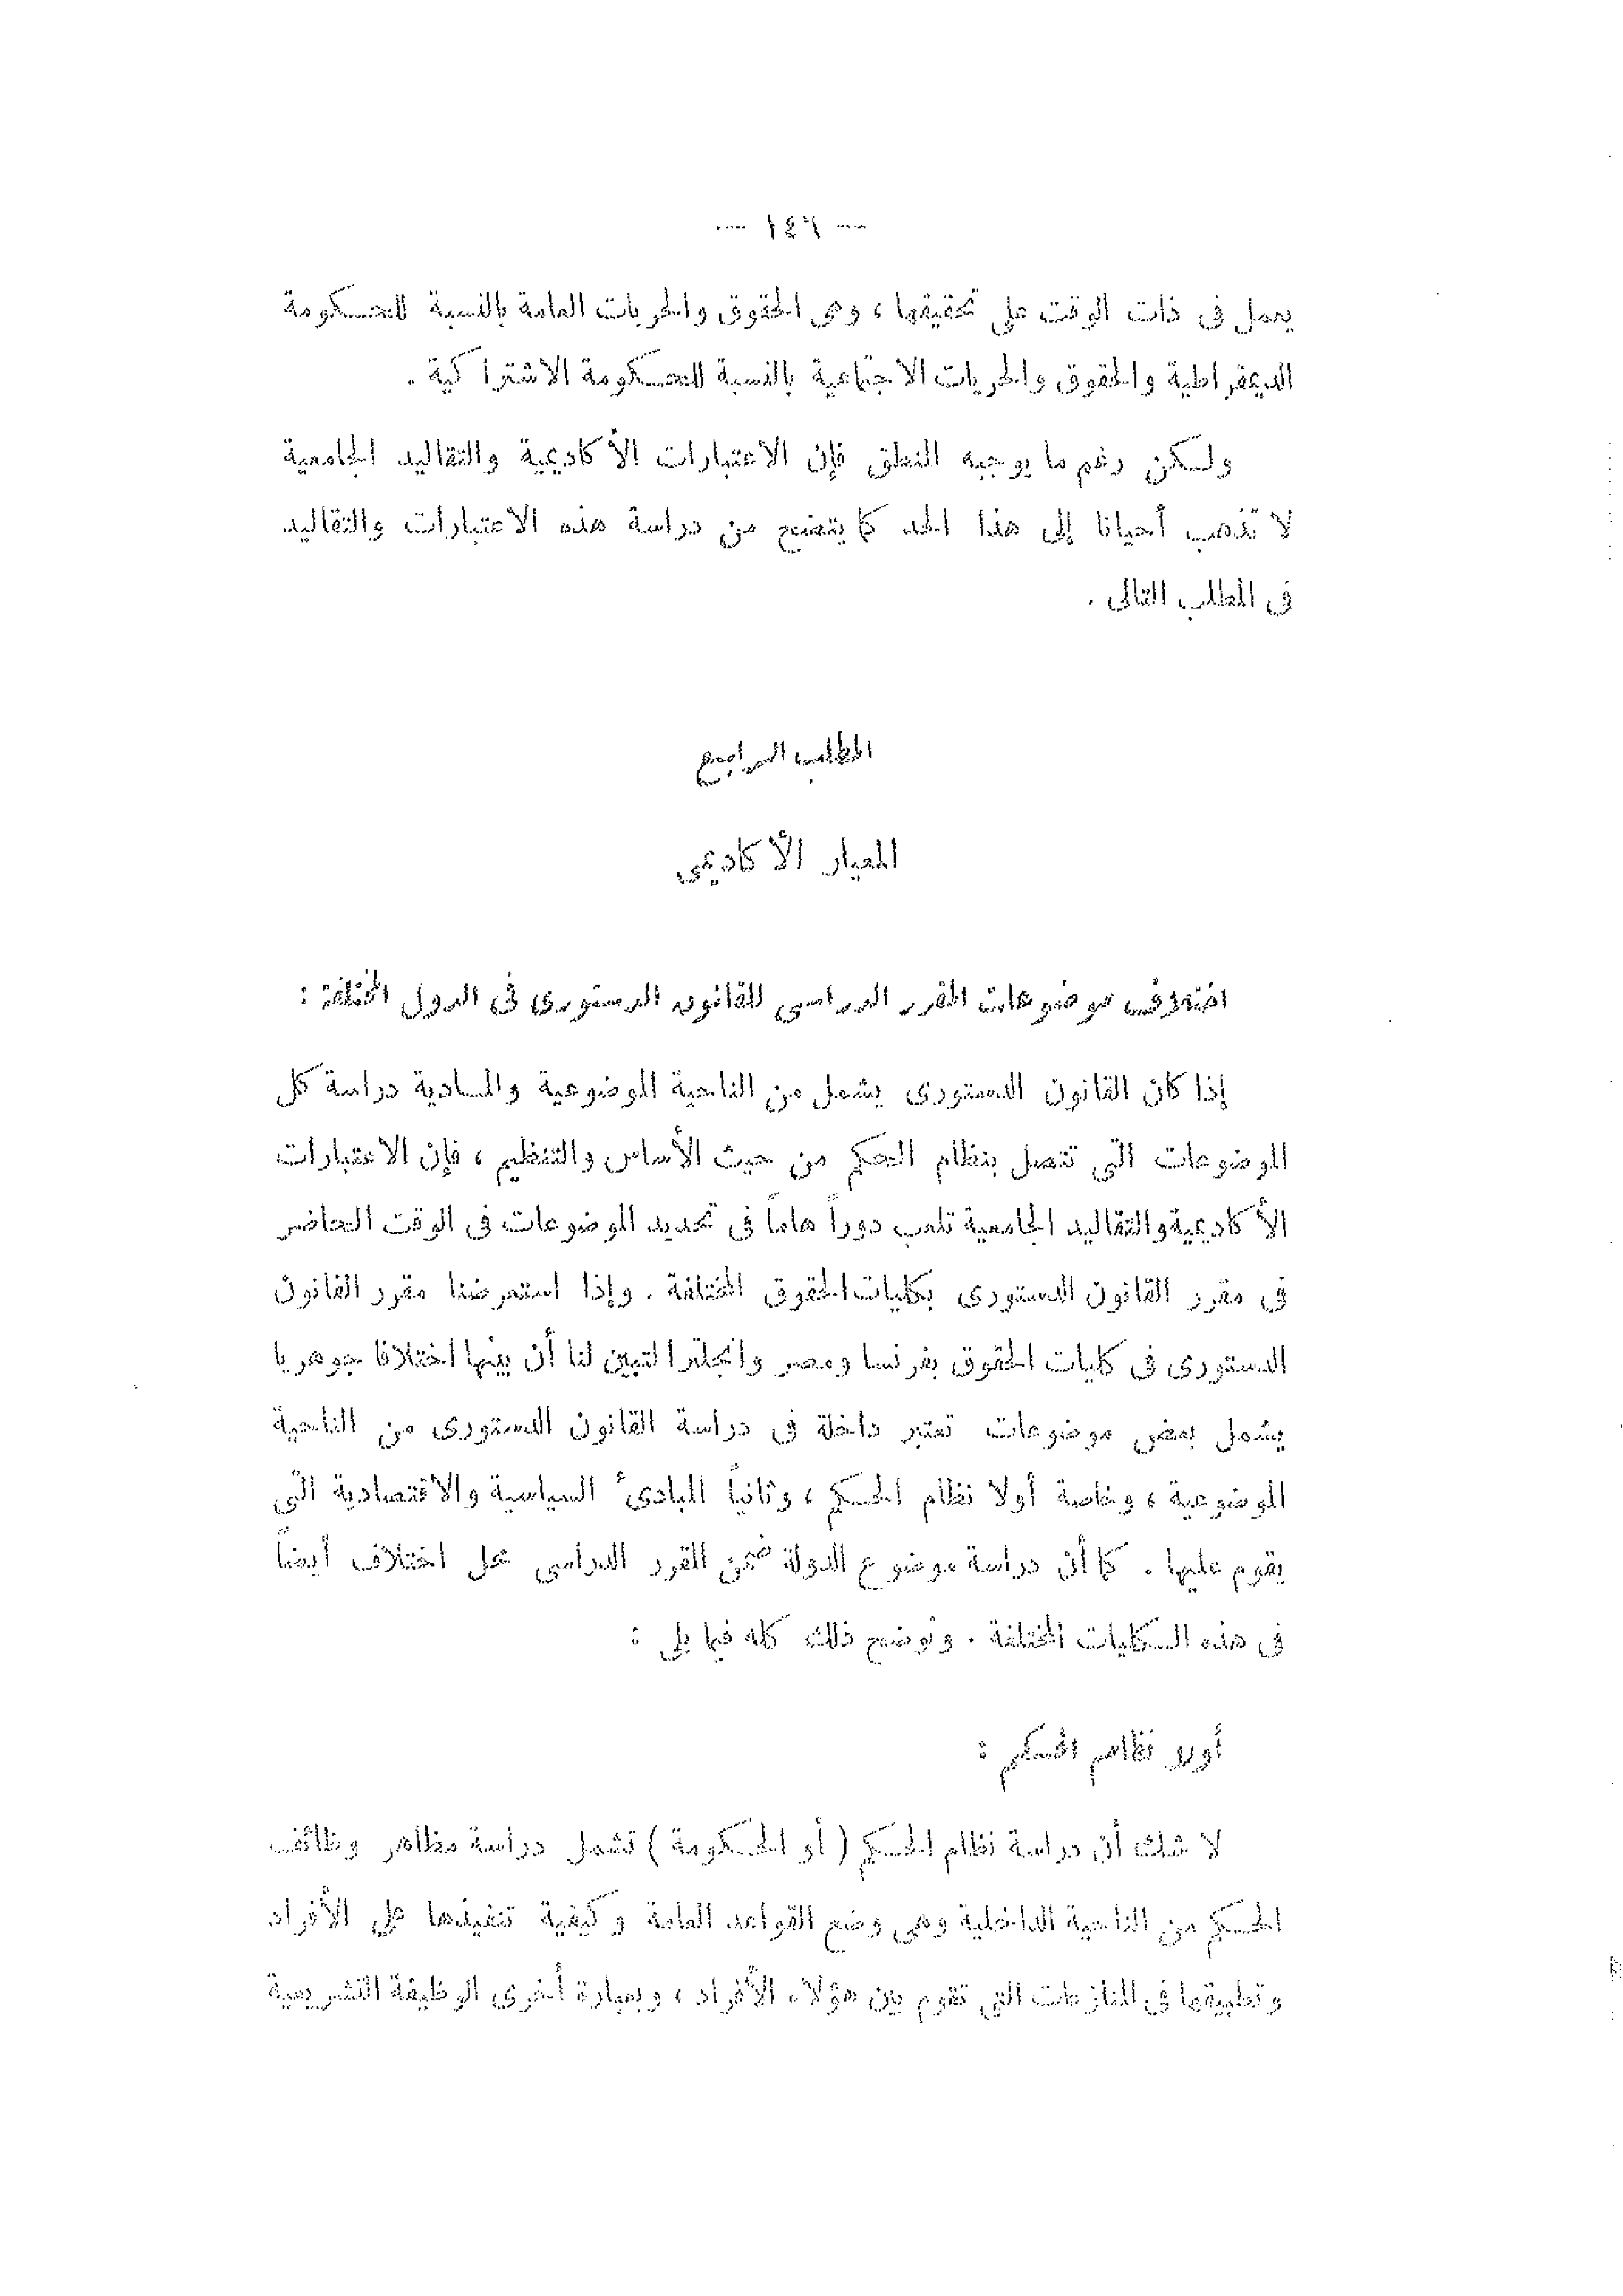 — ١٤٦ —
يعمل فى ذات الوقت على تحقيقها ، وهى الحقوق والحريات العامة بالنسبة للحكومة
الديمقراطية والحقوق والحريات الاجتماعية بالنسبة للحكومة الاشتراكية .
ولكن رغم ما يوجبه المنطق فإن الاعتبارات الأكاديمية والتقاليد الجامعية
لا تذهب أحيانا إلى هذا الحد كما يتضح من دراسة هذه الاعتبارات والتقاليد
فى المطلب التالى .
المطلب الرابع
المعيار الأكاديمى
اختلاف موضوعات المقرر الدراسى للقانون الدستورى فى الدول المختلفة :
إذا كان القانون الدستورى يشمل من الناحية الموضوعية والمادية دراسة كل
الموضوعات التى تتصل بنظام الحكم من حيث الأساس والتنظيم ، فإن الاعتبارات
الأكاديمية والتقاليد الجامعية تلعب دوراً هاماً فى تحديد الموضوعات فى الوقت الحاضر
فى مقرر القانون الدستورى بكليات الحقوق المختلفة . وإذا استعرضنا مقرر القانون
الدستورى فى كليات الحقوق بفرنسا ومصر وانجلترا لتبين لنا أن بينها اختلافا جوهريا
يشمل بعض موضوعات تعتبر داخلة فى دراسة القانون الدستورى من الناحية
الموضوعية ، وخاصة أولا نظام الحكم ، وثانياً المبادئ السياسية والاقتصادية التى
يقوم عليها . كما أن دراسة موضوع الدولة ضمن المقرر الدراسى محل اختلاف أيضاً
فى هذه الكليات المختلفة . ونوضح ذلك كله فيما يلى :
أولا نظام الحكم :
لا شك أن دراسة نظام الحكم ( أو الحكومة ) تشمل دراسة مظاهر وظائف
الحكم من الناحية الداخلية وهى وضع القواعد العامة وكيفية تنفيذها على الأفراد
وتطبيقها فى المنازعات التى تقوم بين هؤلاء الأفراد ، وبعبارة أخرى الوظيفة التشريعية